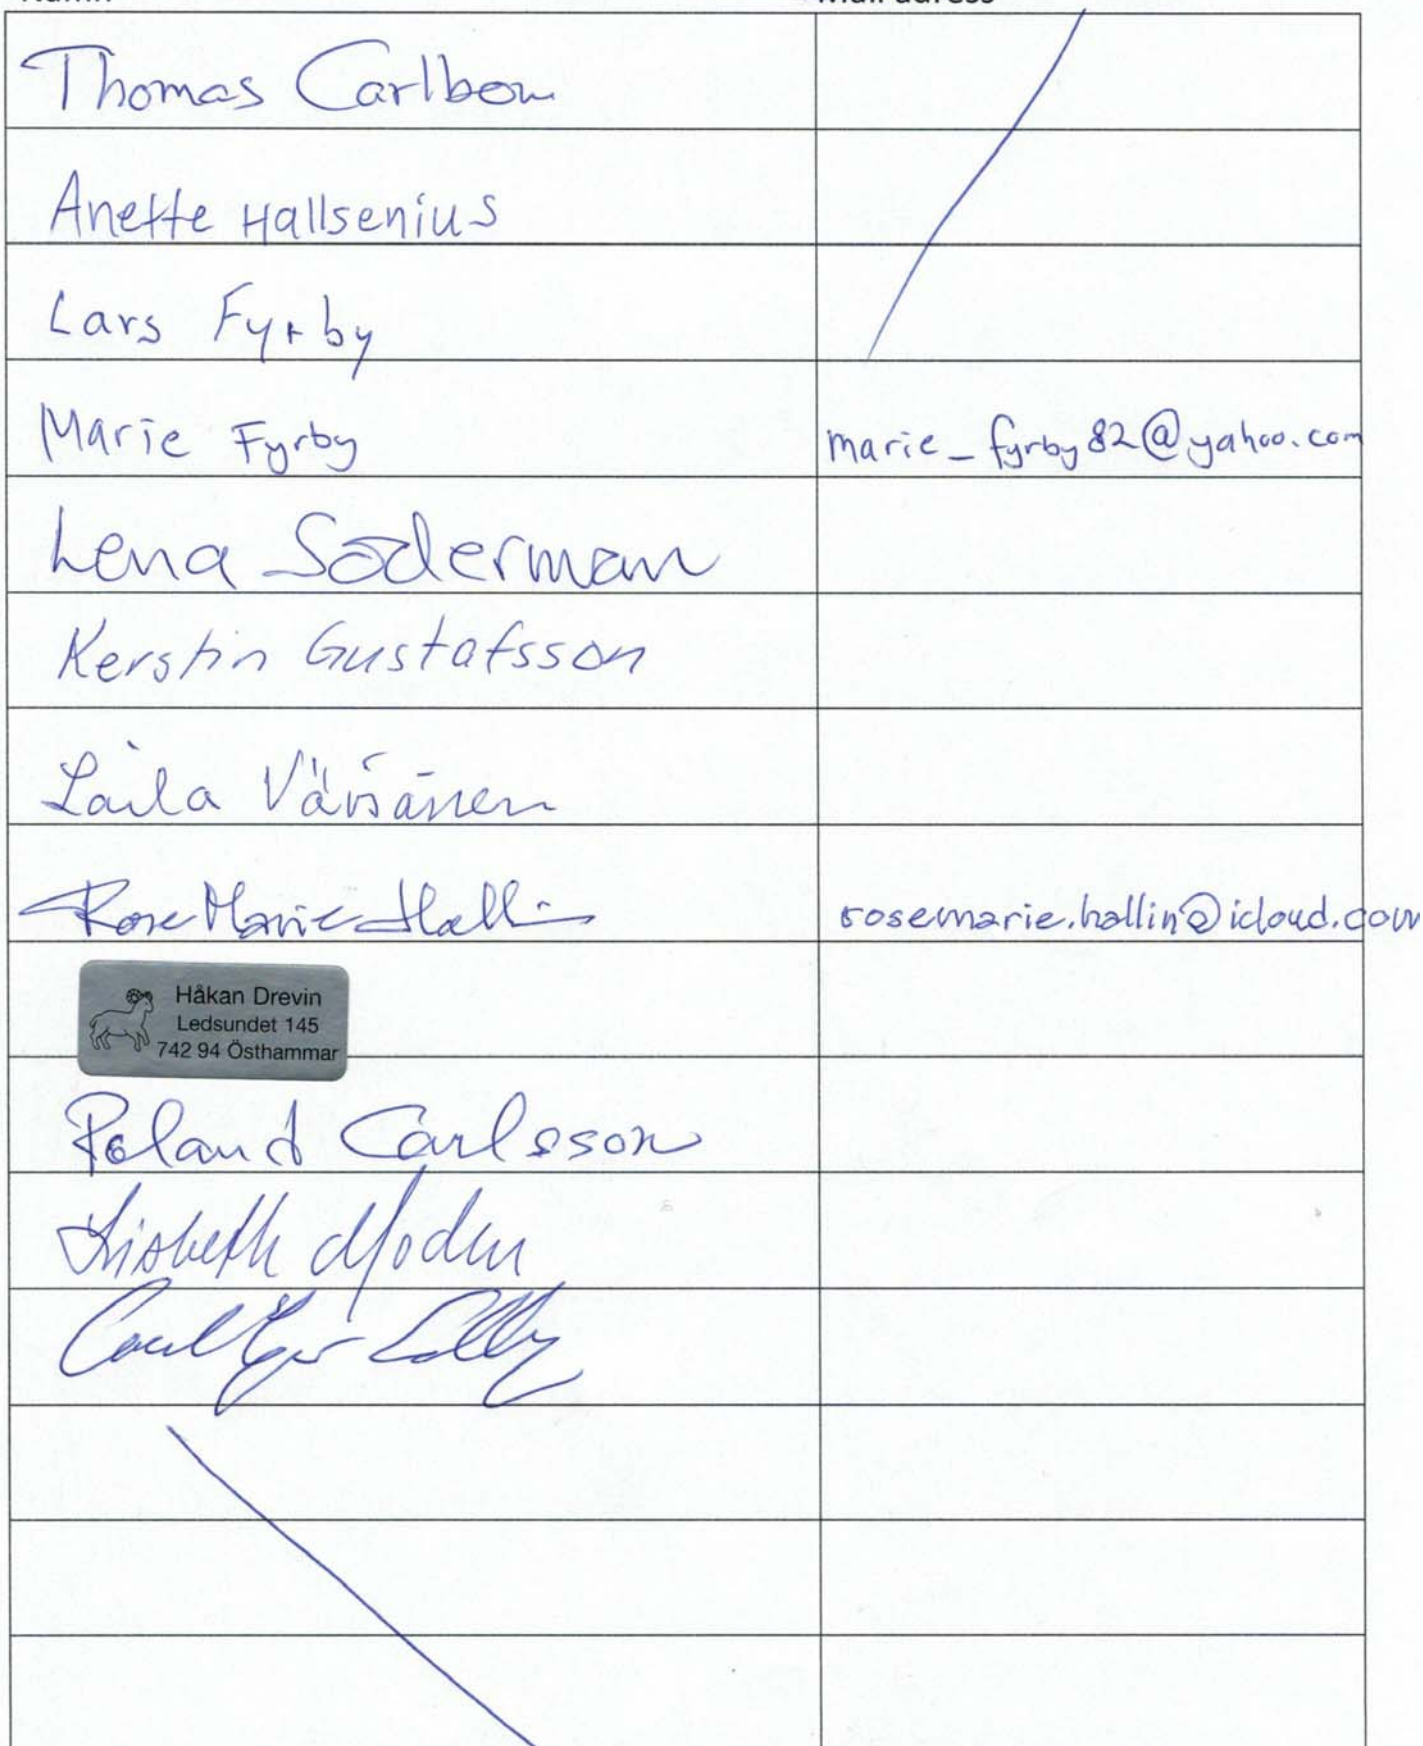 Namn Mail adress
Thomas Carlbom
Anette Hallsenius
Lars Fyrby
Marie Fyrby marie_fyrby82@yahoo.com
Lena Söderman
Kerstin Gustafsson
Laila Väisänen
Rose Marie Hallin rosemarie.hallin@icloud.com
Håkan Drevin
Ledsundet 145
742 94 Östhammar
Roland Carlsson
Lisbeth Modén